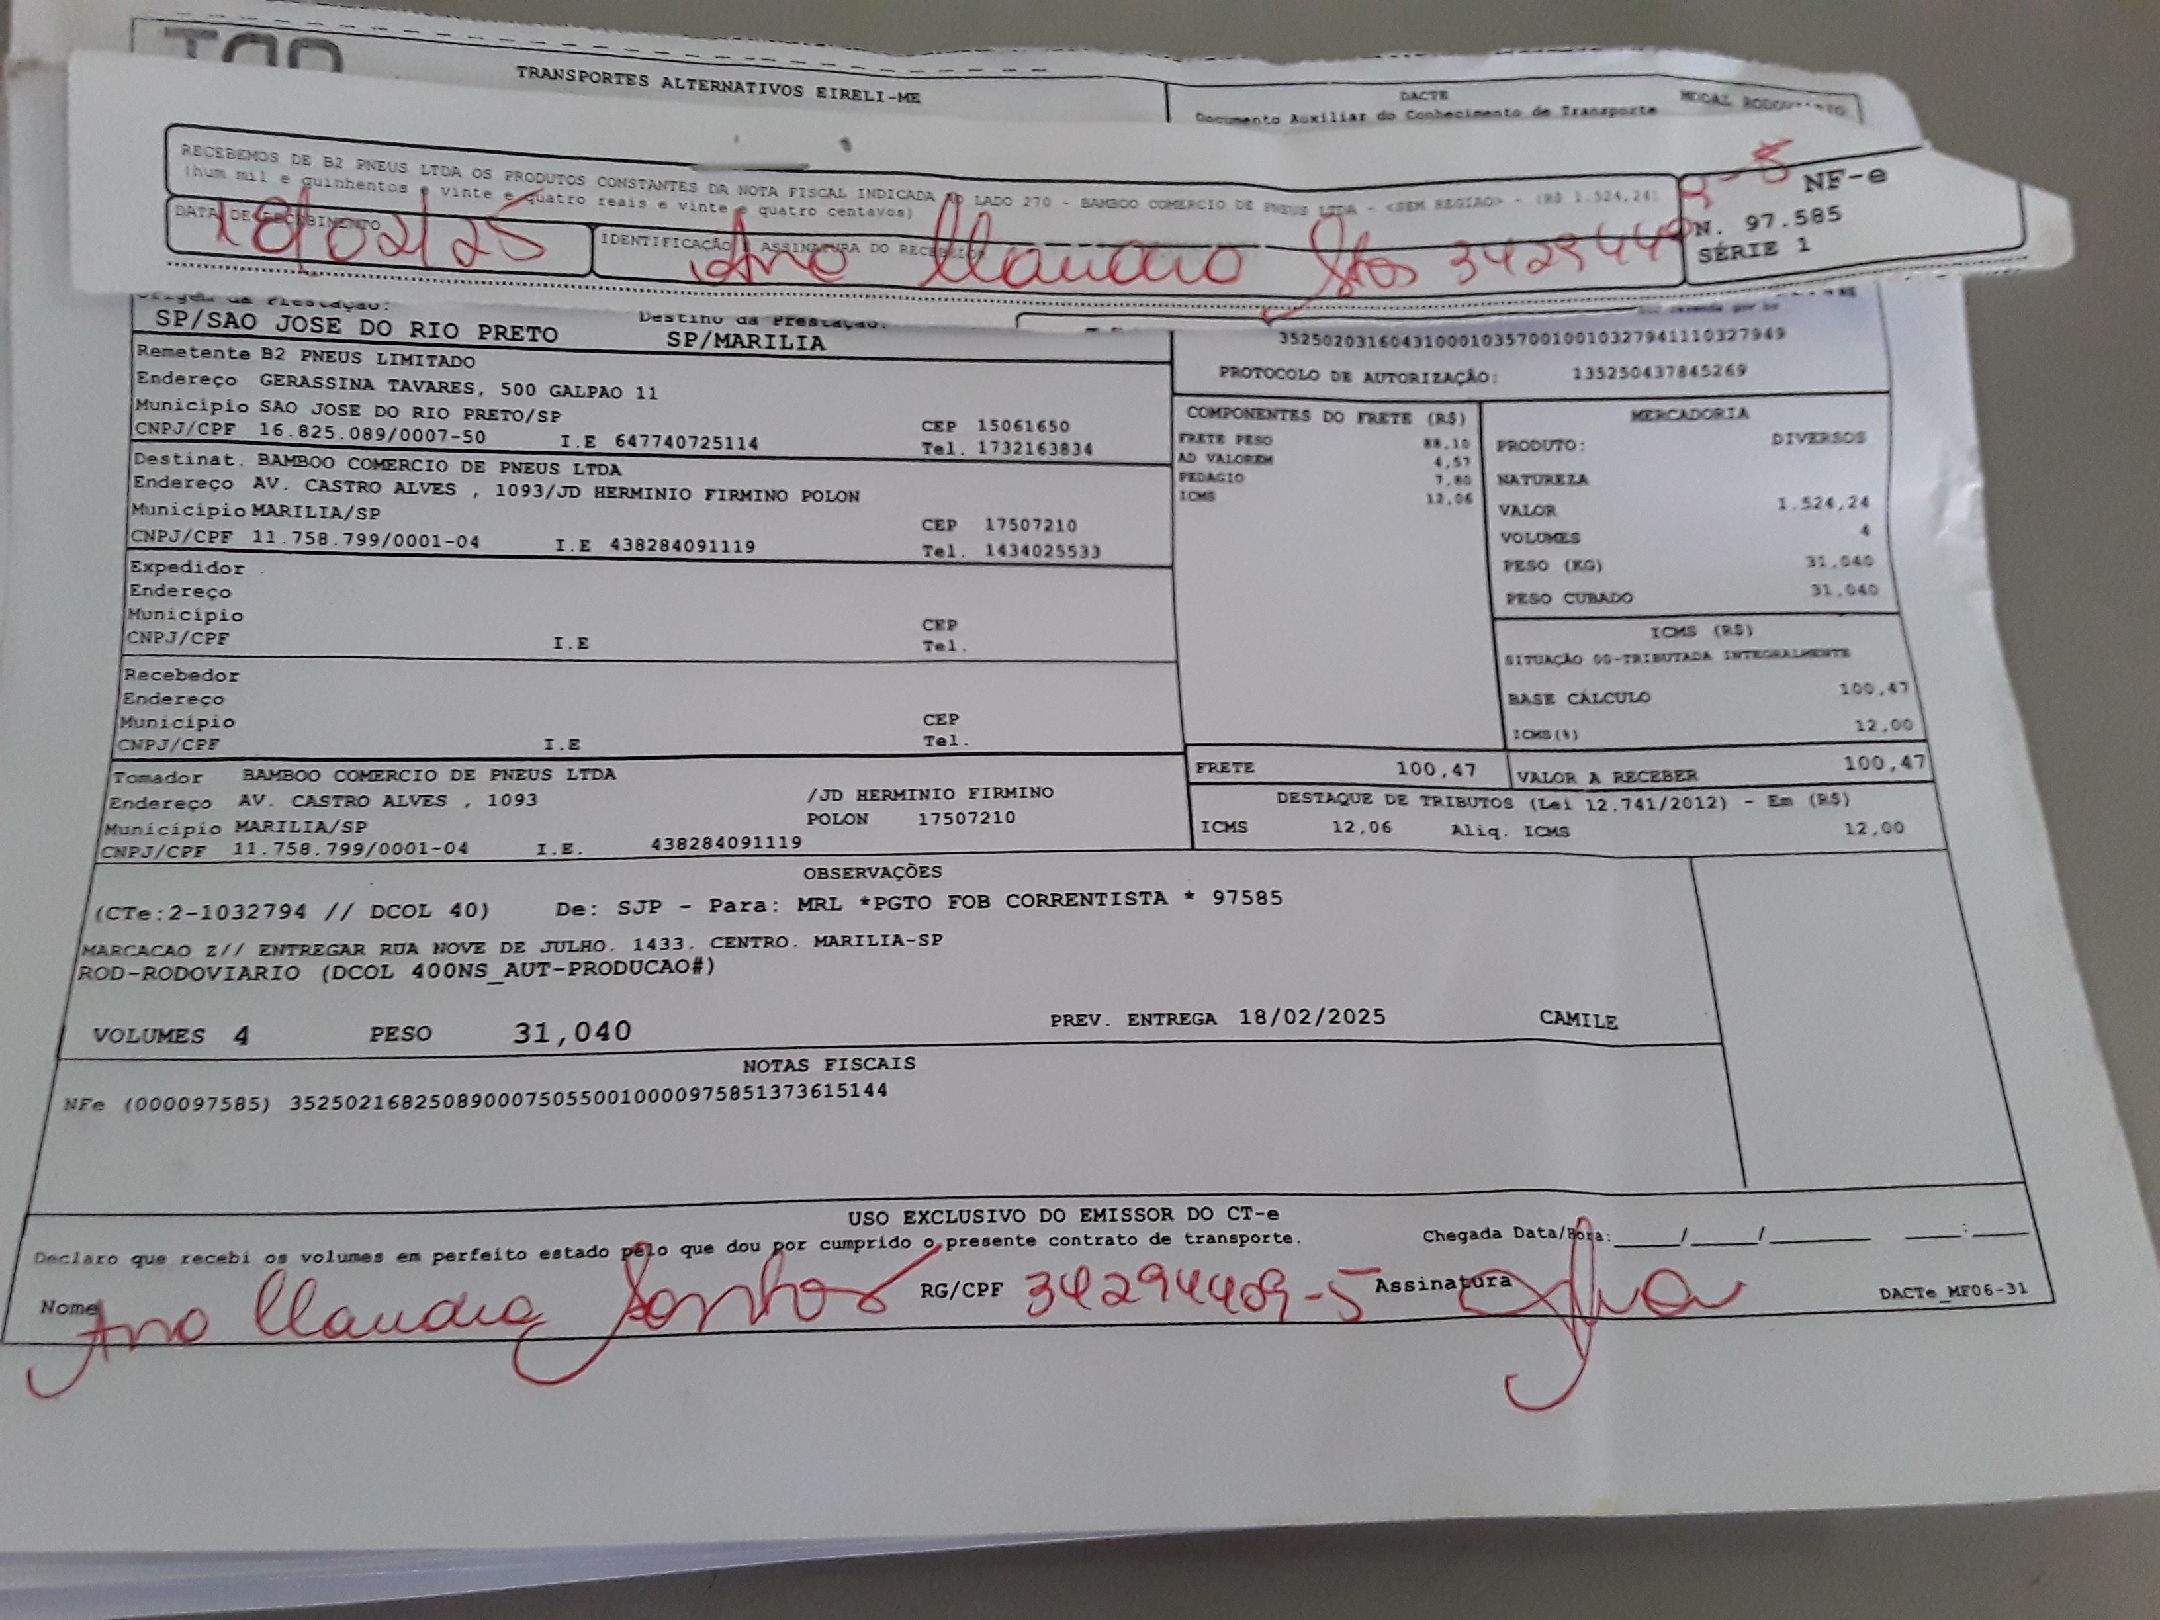 TRANSPORTES ALTERNATIVOS EIRELI-ME
DACTE
Documento Auxiliar do Conhecimento de Transporte
MODAL RODOVIARIO
RECEBEMOS DE B2 PNEUS LTDA OS PRODUTOS CONSTANTES DA NOTA FISCAL INDICADA AO LADO 270 - BAMBOO COMERCIO DE PNEUS LTDA - <SEM REGIAO> - (R$ 1.524,24)
(hum mil e quinhentos e vinte e quatro reais e vinte e quatro centavos)
DATA DE RECEBIMENTO
18/02/25
IDENTIFICAÇÃO E ASSINATURA DO RECEBEDOR
Ana Claudia Stos 34294409-5
NF-e
N. 97.585
SÉRIE 1
Origem da Prestação:
Destino da Prestação:
SP/SAO JOSE DO RIO PRETO
SP/MARILIA
Remetente B2 PNEUS LIMITADO
Endereço GERASSINA TAVARES, 500 GALPAO 11
Município SAO JOSE DO RIO PRETO/SP CEP 15061650
CNPJ/CPF 16.825.089/0007-50 I.E 647740725114 Tel. 1732163834
Destinat. BAMBOO COMERCIO DE PNEUS LTDA
Endereço AV. CASTRO ALVES , 1093/JD HERMINIO FIRMINO POLON
Município MARILIA/SP CEP 17507210
CNPJ/CPF 11.758.799/0001-04 I.E 438284091119 Tel. 1434025533
Expedidor
Endereço
Município CEP
CNPJ/CPF I.E Tel.
Recebedor
Endereço
Município CEP
CNPJ/CPF I.E Tel.
Tomador BAMBOO COMERCIO DE PNEUS LTDA
Endereço AV. CASTRO ALVES , 1093 /JD HERMINIO FIRMINO
POLON 17507210
Município MARILIA/SP
CNPJ/CPF 11.758.799/0001-04 I.E. 438284091119
35250203160431000103570010010327941110327949
PROTOCOLO DE AUTORIZAÇÃO: 135250437845269
COMPONENTES DO FRETE (R$)
FRETE PESO 88,10
AD VALOREM 4,57
PEDAGIO 7,80
ICMS 12,06
MERCADORIA
PRODUTO: DIVERSOS
NATUREZA
VALOR 1.524,24
VOLUMES 4
PESO (KG) 31,040
PESO CUBADO 31,040
ICMS (R$)
SITUAÇÃO 00-TRIBUTADA INTEGRALMENTE
BASE CÁLCULO 100,47
ICMS(%) 12,00
FRETE 100,47
VALOR A RECEBER 100,47
DESTAQUE DE TRIBUTOS (Lei 12.741/2012) - Em (R$)
ICMS 12,06 Aliq. ICMS 12,00
OBSERVAÇÕES
(CTe:2-1032794 // DCOL 40) De: SJP - Para: MRL *PGTO FOB CORRENTISTA * 97585
MARCACAO Z// ENTREGAR RUA NOVE DE JULHO. 1433. CENTRO. MARILIA-SP
ROD-RODOVIARIO (DCOL 400NS_AUT-PRODUCAO#)
VOLUMES 4 PESO 31,040 PREV. ENTREGA 18/02/2025 CAMILE
NOTAS FISCAIS
NFe (000097585) 35250216825089000750550010000975851373615144
USO EXCLUSIVO DO EMISSOR DO CT-e
Declaro que recebi os volumes em perfeito estado pelo que dou por cumprido o presente contrato de transporte. Chegada Data/Hora:____/____/______ ___:___
Nome Ana Claudia Santos RG/CPF 34294409-5 Assinatura
DACTe_MF06-31